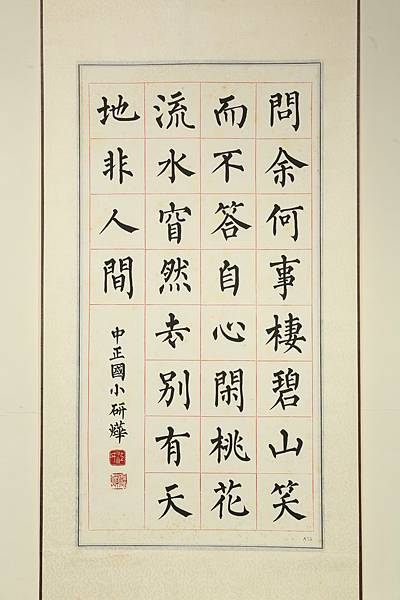 問余何事棲碧山笑
而不答自心閑桃花
流水窅然去別有天
地非人間
中正國小研燁